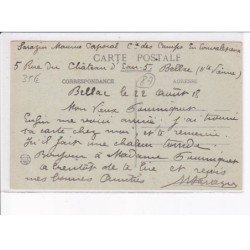 Sarazin Maurice Caporal Cie des Camps en Convalescence
CARTE POSTALE
5 Rue du Château d'Eau 5. Bellac (Hte Vienne)
CORRESPONDANCE ADRESSE
35€ 87
Bellac le 22 août 18
Mon Vieux
Enfin me voici arrivé j'ai trouvé
ta carte chez moi, et te remercie.
Ici il fait une chaleur torride.
Bonjour à Madame
a bientôt de te lire et reçois
mes bonnes Amitiés
MSarazin